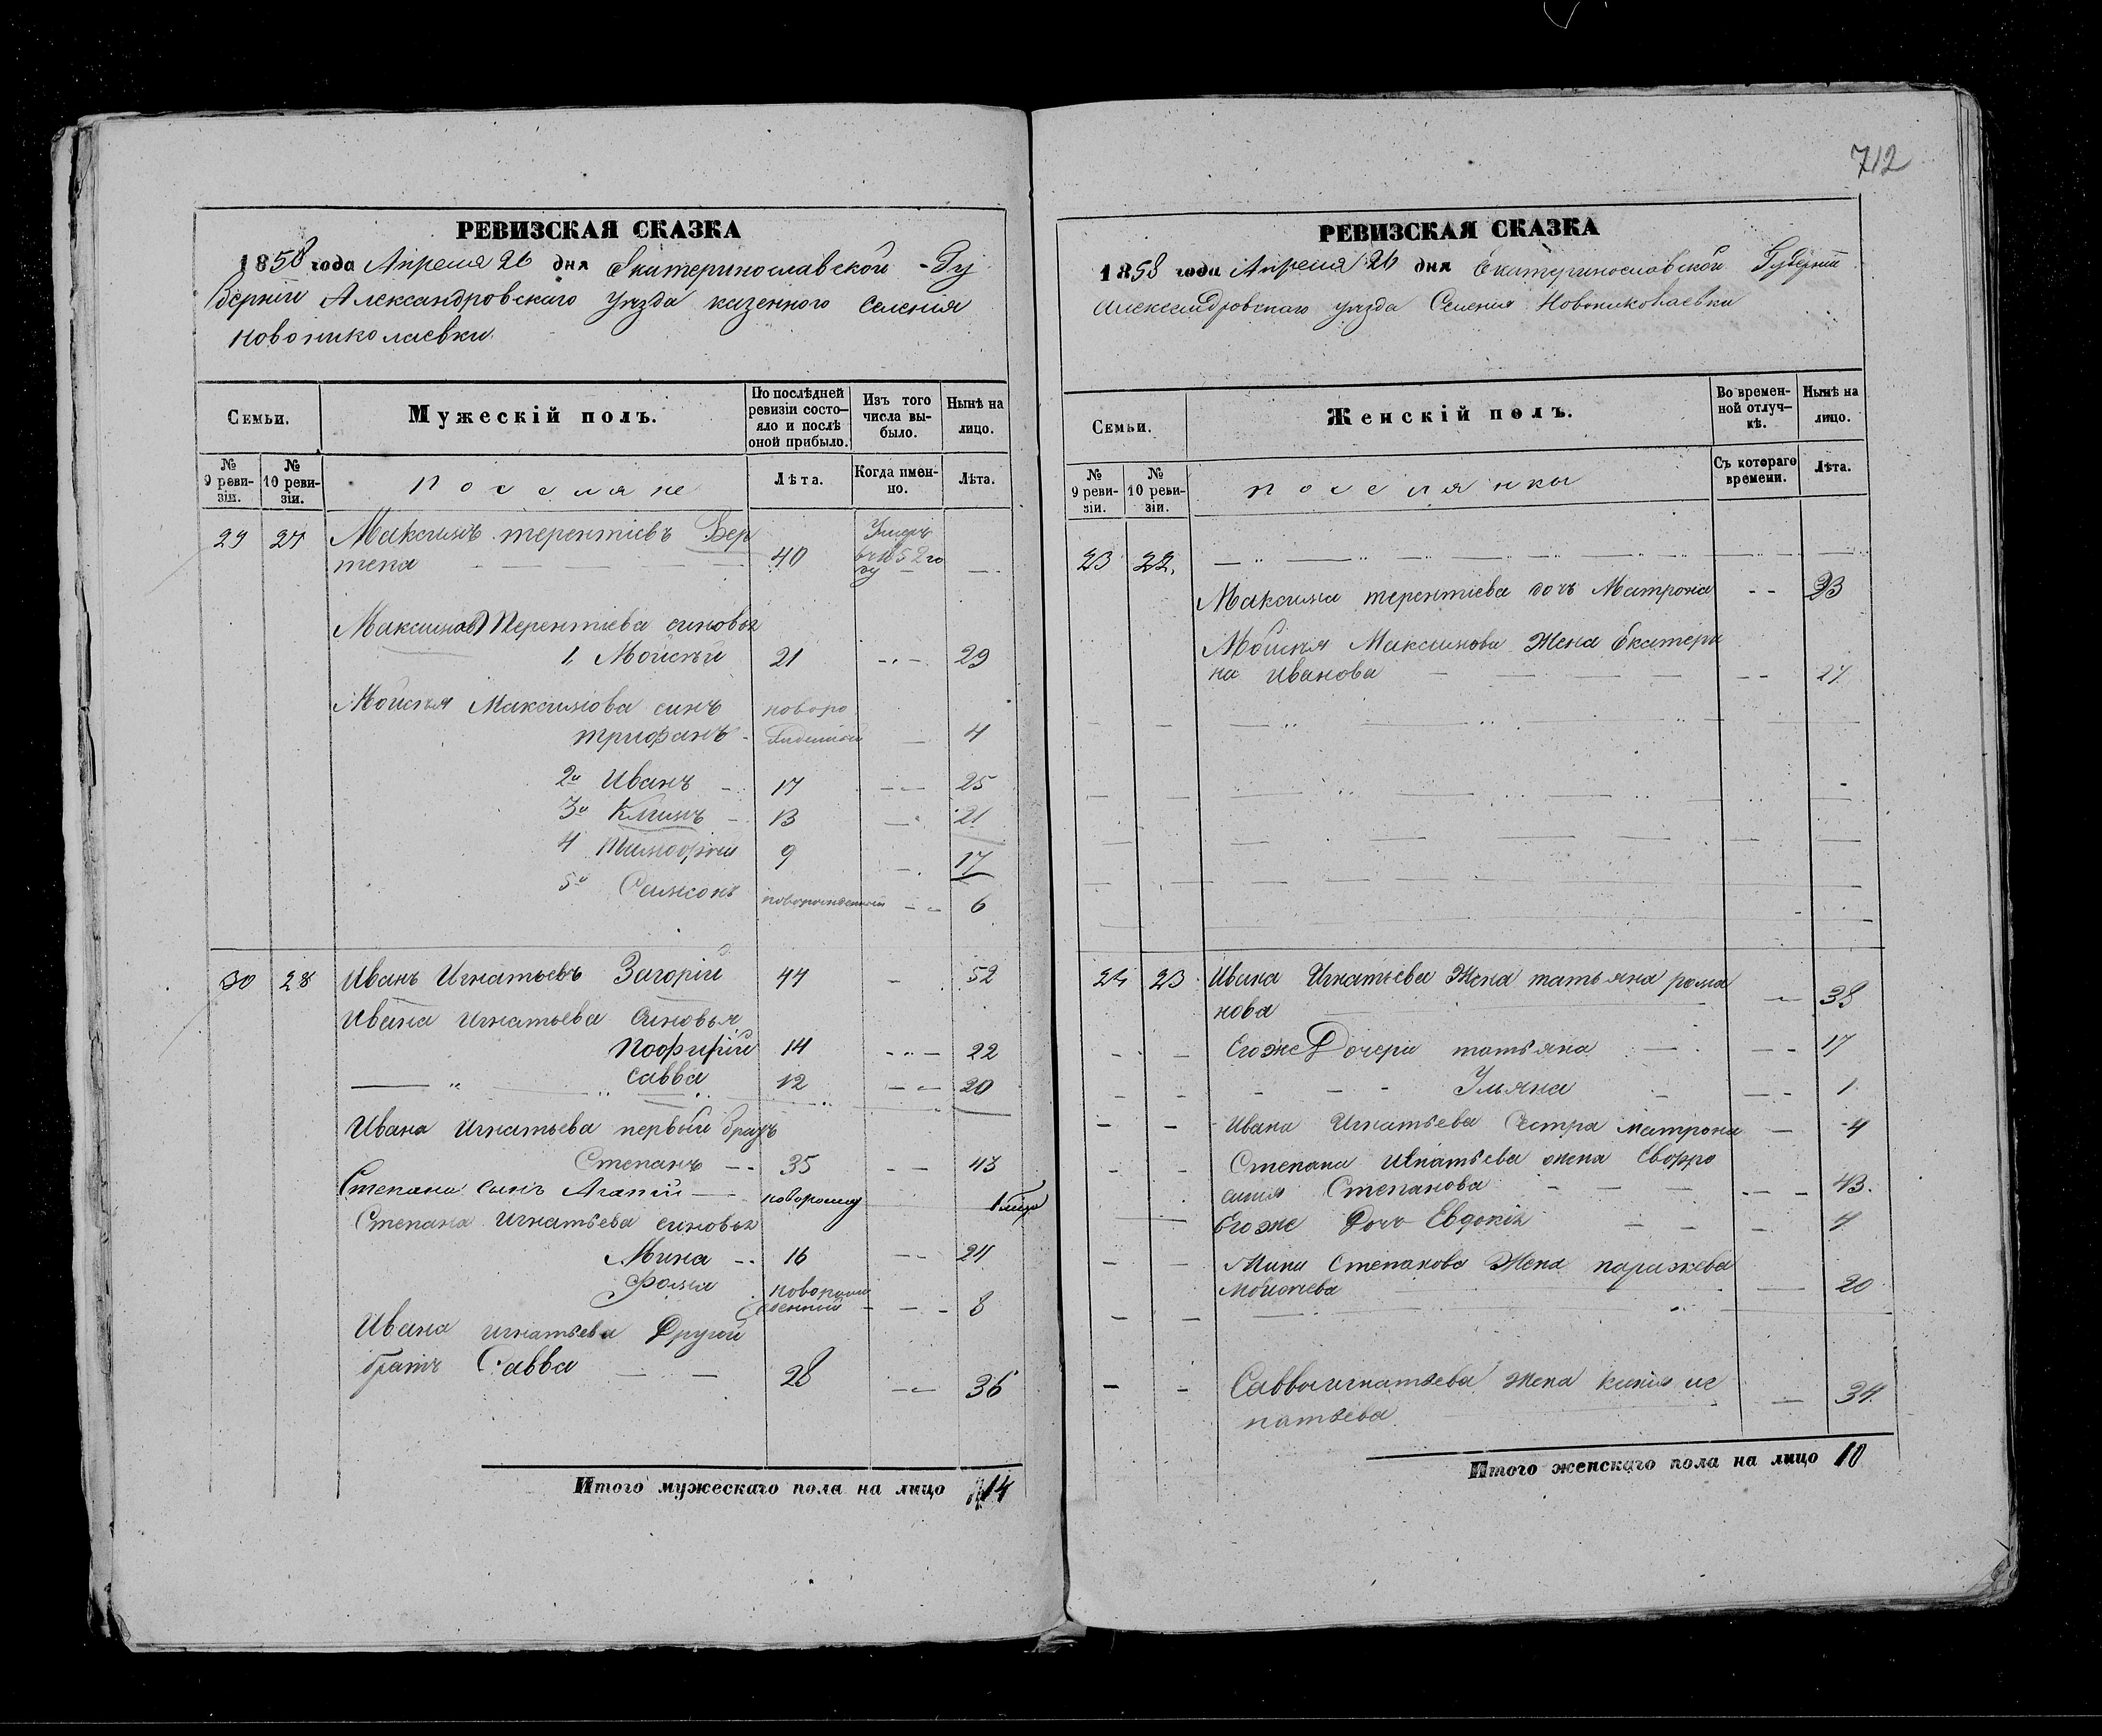 712
РЕВИЗСКАЯ СКАЗКА
1858 года Апреля 26 дня Екатеринославской Гу
берніи Александровскаго уезда казенного Селенія
Новониколаевки
Семьи.
Мужескій полъ.
По послѣдней ревизіи состояло и послѣ оной прибыло.
Изъ того числа выбыло.
Нынѣ на лицо.
№ 9 ревизіи.
№ 10 ревизіи.
Поселяне
Лѣта.
Когда именно.
Лѣта.
29 27 Максимъ терентіевъ
40 Умеръ в 1852 го
ду
Максима Терентиева синовья
1, Мойсѣй 21 29
Мойсѣя Максимова синъ новоро
трифанъ жденный 4
2й Иванъ 17 25
3й Климъ 13 21
4 Тимофѣй 9 17
5й Самсонъ новорожденный 6
30 28 Иванъ Игнатьевъ Загорій 44 52
Ивана Игнатьева синовья
Порфирій 14 22
Савва 12 20
Ивана Игнатьева первый братъ
Степанъ 35 43
Степана сынъ Агапій новорожд
Степана Игнатьева синовья
Мина 16 24
Фома новорож
денный 8
Ивана игнатьева Другой
братъ Савва 28 36
Итого мужескаго пола на лицо 14
РЕВИЗСКАЯ СКАЗКА
1858 года Апреля 26 дня Екатеринославской Губерніи
Александровскаго уезда Селенія Новониколаевки
Семьи.
Женскій полъ.
Во временной отлучкѣ.
Нынѣ на лицо.
№ 9 ревизіи.
№ 10 ревизіи.
поселянки
Съ котораго времени.
Лѣта.
23 22.
Максима терентіева дочъ Матрона
Мойсѣя Максимова Жена Екатери
на Иванова 27
24 23 Ивана Игнатьева Жена татьяна рома
нова 38
Егоже Дочери татьяна 17
Ульяна 1
Ивана Игнатьева Сестра Матрона 4
Степана Игнатьева жена Евфро
синия Степанова 43.
Егоже Дочъ Евдокія 4
Мини Степанова Жена
20
Саввы игнатьева жена
патьева 34
Итого женскаго пола на лицо 10